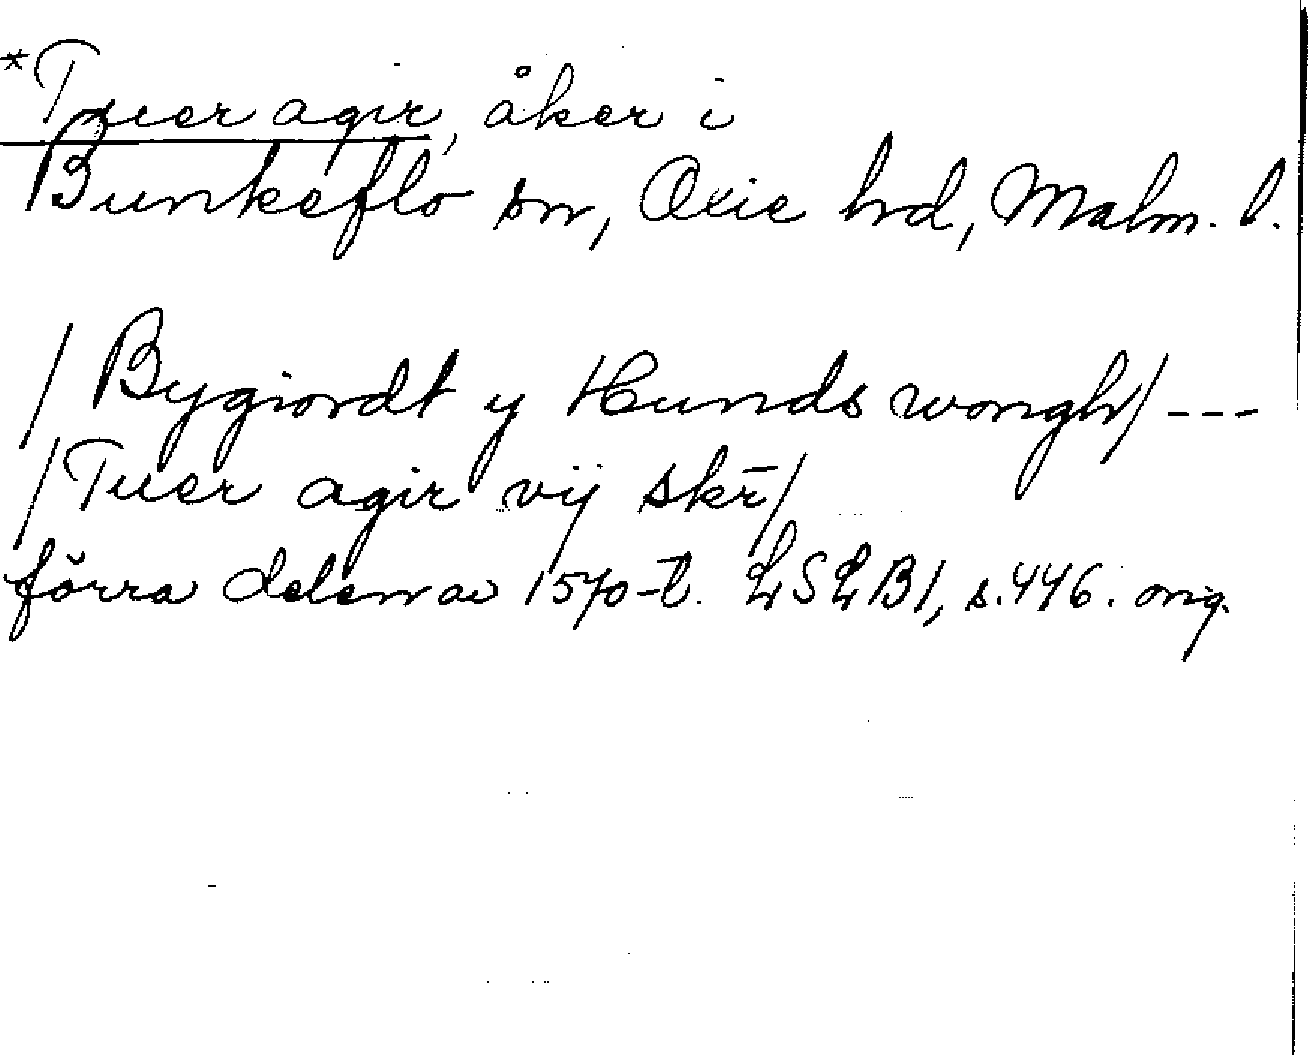 *Tuer agir, åker i
Bunkeflo sn, Oxie hrd, Malm. l.
/Bygiordt y Hunds wongh/ ---
/Tuer agir vij skr̄/
förra delen av 1570-t. LSLB1, s. 446. orig.